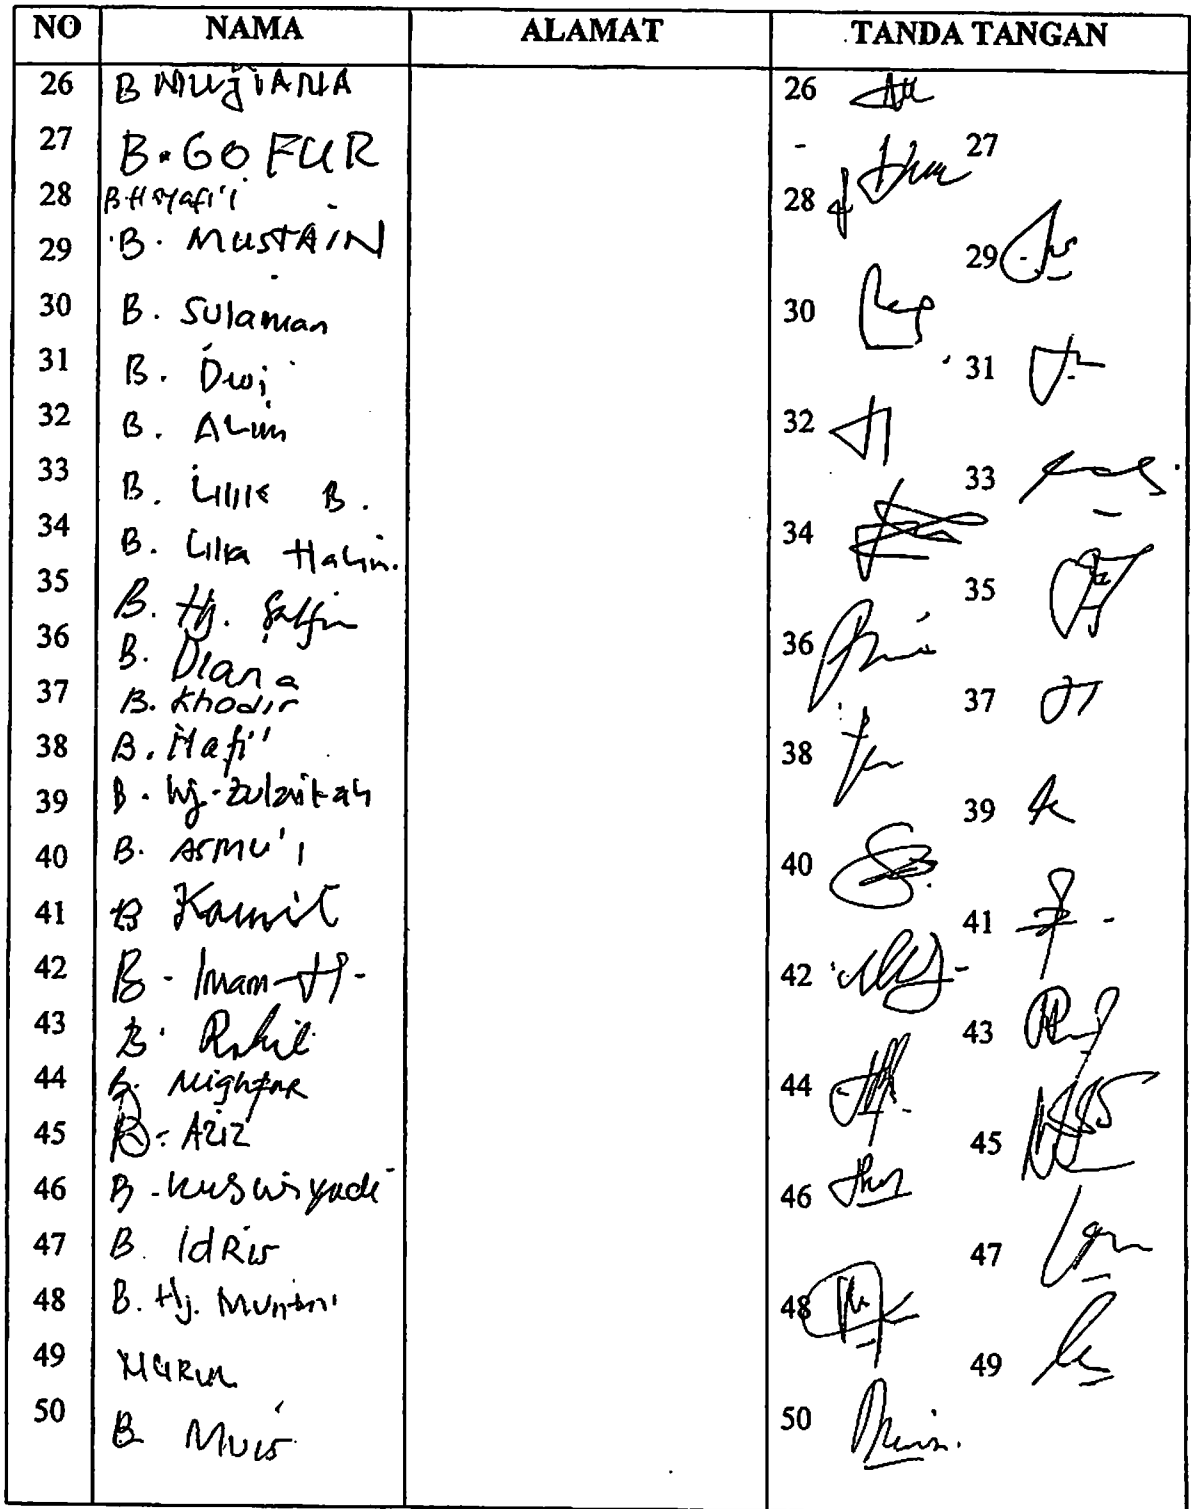 NO NAMA ALAMAT TANDA TANGAN
26 B MUJIANA 26
27 B. GOFUR 27
28 B H Syafi'i 28
29 B. MUSTAIN 29
30 B. Sulaiman 30
31 B. Dwi 31
32 B. ALim 32
33 B. Lilik B. 33
34 B. Lilik Halim. 34
35 B. Hj. 35
36 B. Diana 36
37 B. Khodir 37
38 B. Nafi' 38
39 B. Hj. Zulaikah 39
40 B. ASMU'I 40
41 B Kamil 41
42 B - Imam - H - 42
43 B. 43
44 B. 44
45 B. AZIZ 45
46 B - Kuswiyadi 46
47 B. IdRis 47
48 B. Hj. 48
49 NURUL 49
50 B Muis 50